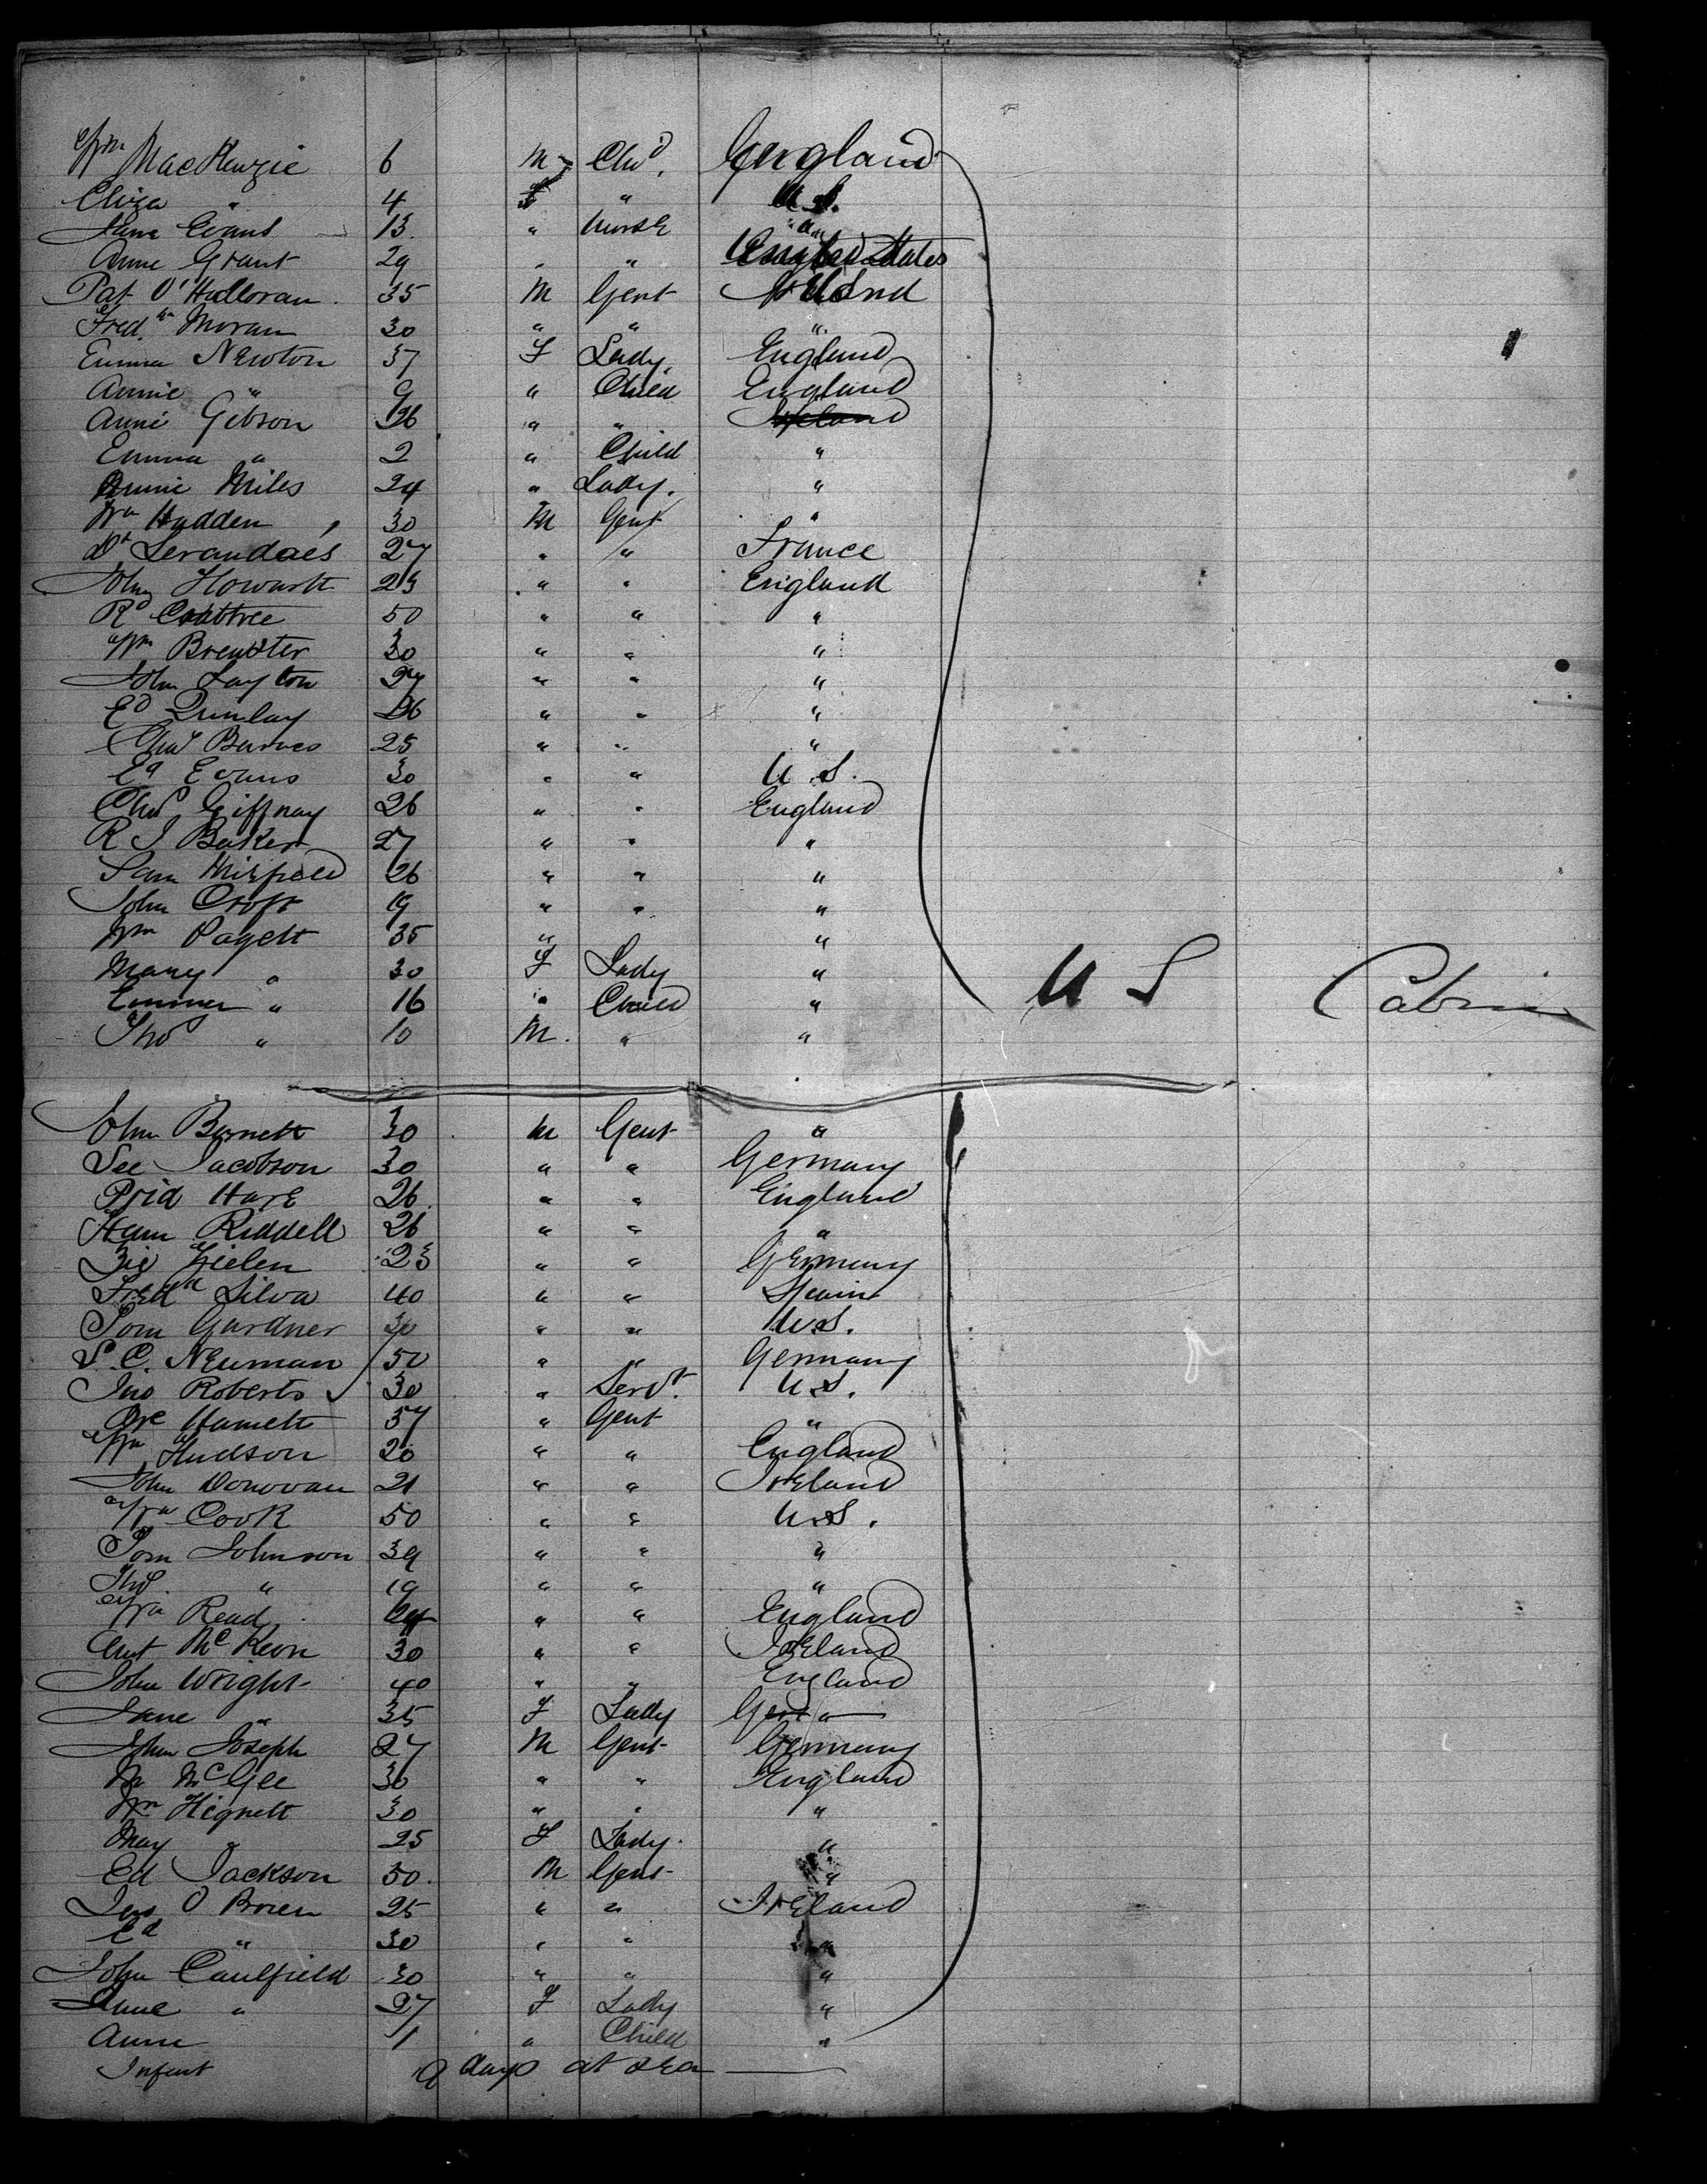 Wm MacKenzie 6 M Chd. England
Eliza " 4 F " U.S.
Jane Evans 13 " Nurse "
Anne Grant 29 " " United States
Pat O'Halloran 35 M Gent Ireland
Fredk Moran 30 " " "
Emma Newton 37 F Lady England
Annie " 9 " Child England
Annie Gibson 26 " " Ireland
Emma " 2 " Child "
Annie Miles 24 " Lady. "
Wm Hadden 30 M Gent "
27 " " France
John Howarth 25 " " England
Rd Crabtree 50 " " "
Wm Brewster 30 " " "
John Layton 27 " " "
Ed Quinlay 26 " " "
Chas Barnes 25 " " "
Ed Evans 30 " " U.S.
Chas Giffnay 26 " " England
R J Baker 27 " " "
Sam 26 " " "
John Croft 19 " " "
Wm Pagett 35 " "
Mary " 30 F Lady "
Emma " 16 " Child " U S Cabin
Thos " 10 M. " "
John Burnett 30 M Gent "
Jacobson 30 " " Germany
Hare 26 " " England
Riddell 26 " " "
Zielen 23 " " Germany
Fredk Silva 40 " " Spain
Tom Gardner 30 " " U.S.
S. C. Neuman 50 " " Germany
Jno Roberts 30 " Servt. U.S.
Hamett 37 " Gent "
Wm Hudson 20 " " England
John Donovan 21 " " Ireland
Wm Cook 50 " " U.S.
Tom Johnson 39 " " "
Thos. " 19 " " "
Wm Read 24 " " England
Ant McKeon 30 " " Ireland
John Wright 40 " " England
Jane " 35 F Lady Gent "
John Joseph 27 M Gent Germany
McGee 30 " " England
Wm Hignett 30 " " "
May " 25 F Lady. "
Ed Jackson 50. M Gent "
Jas O Brien 25 " " Ireland
Ed " 30 " " "
John Caulfield 30 " " "
Anne " 27 F Lady "
Anne 1 " Child "
Infant 9 days at sea